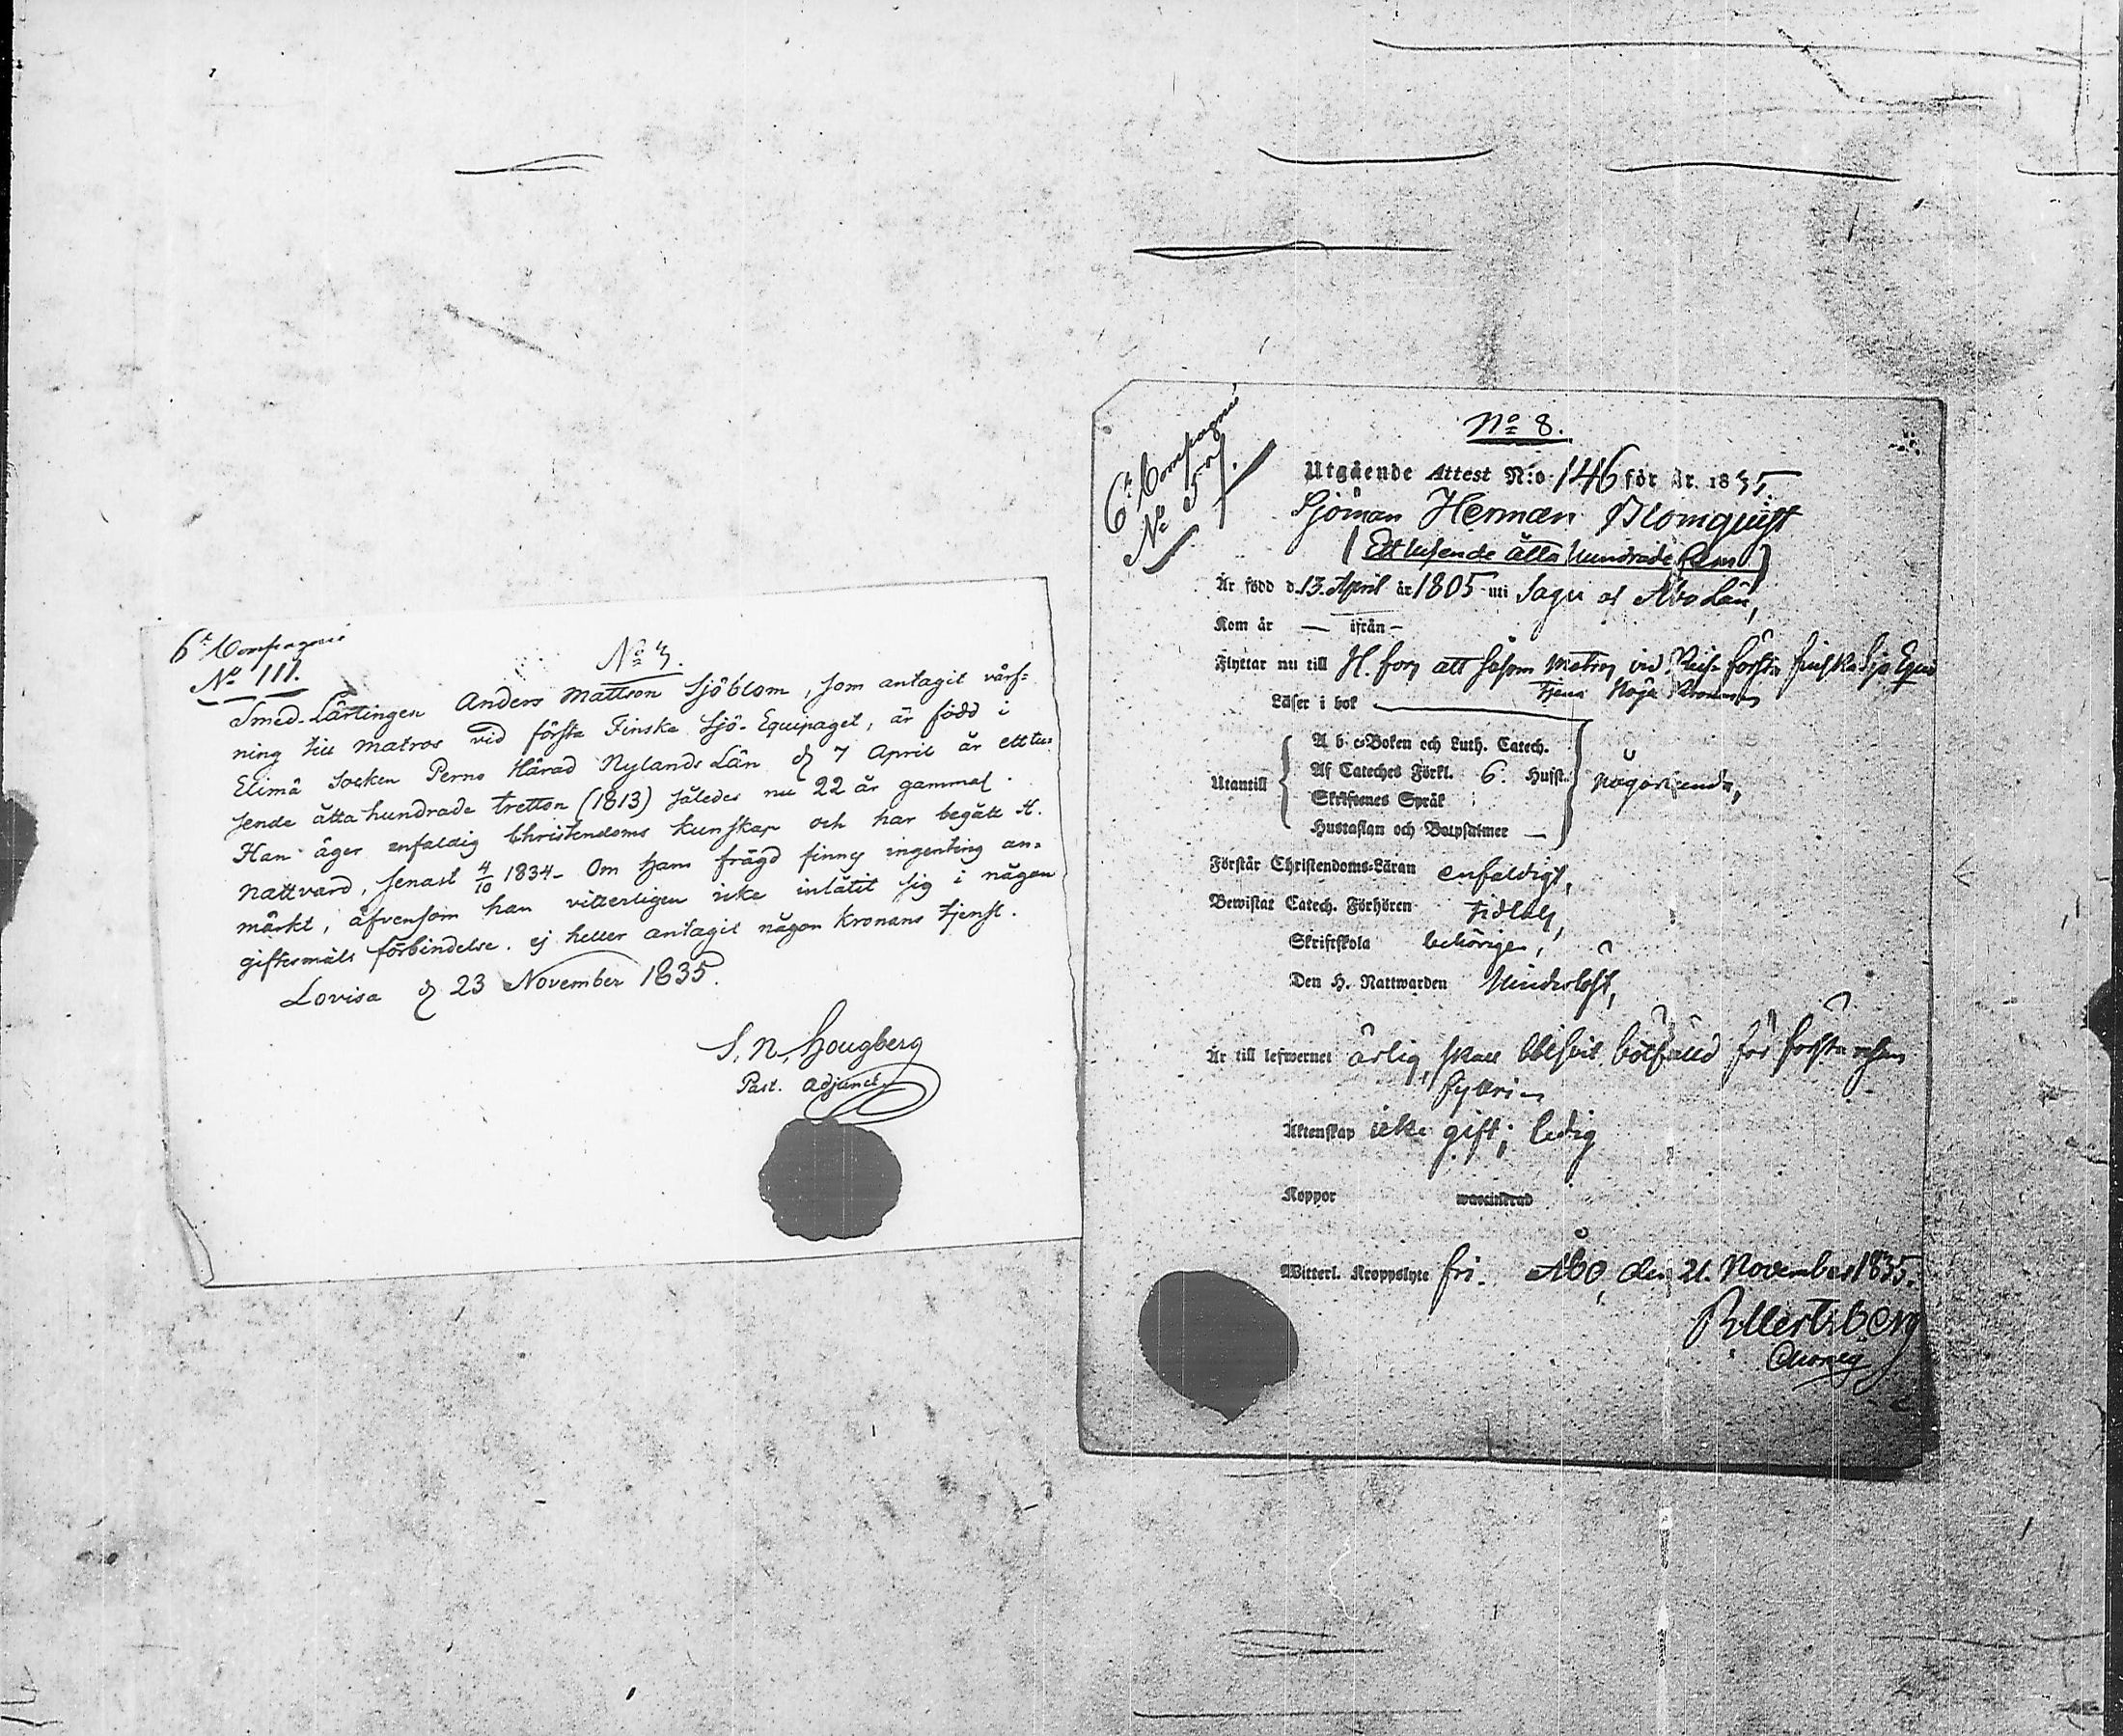 6te Compagnie
No 111.
No 3.
Smed-Lärlingen Anders Mattson Sjöblom, som antagit värf-
ning till matros vid första Finska Sjö-Equipaget, är född i
Elimä Socken Perno Härad Nylands Län d 7 April år ettu-
sende åtta hundrade tretton (1813) således nu 22 år gammal.
Han äger enfaldig Christendoms kunskap och har begått H.
nattvard, senast 4/10 1834. Om hans frägd finnes ingenting an-
märkt, äfvensom han vitterligen icke inlåtit sig i någon
giftermåls förbindelse, ej heller antagit någon Kronans tjenst.
Lovisa d 23 November 1835.
S. N. Hougberg
Past. Adjunct
6te Compagnie
No 57.
No 8.
Utgående Attest N:o 146 för År. 1835
Sjöman Herman Blomquist
(Ett tusende åtta hundrade fem)
Är född d. 13. April år 1805 uti Sagu af Åbo Län,
Kom år — ifrån —
Flyttar nu till H. fors att såsom Matros vid första finska Sjö Equi
tjena Höga Kronan
Läser i bok
Utantill
A b c-Boken och Luth. Catech.
Af Cateches Förkl. 6. Hufst.
Skriftenes Språk
Hustaflan och Botpsalmer —
någorlunda,
Förstår Christendoms-Läran enfaldigt,
Bewistat Catech. Förhören
Skriftskola behörigen,
Den H. Nattwarden hinderlöst,
Är till lefwernet ärlig, skall blifvit bötfälld för första resan
fylleri
Äktenskap icke gift; ledig
Koppor waccinerad
Witterl. Kroppslyte fri. Åbo, den 21. November 1835.